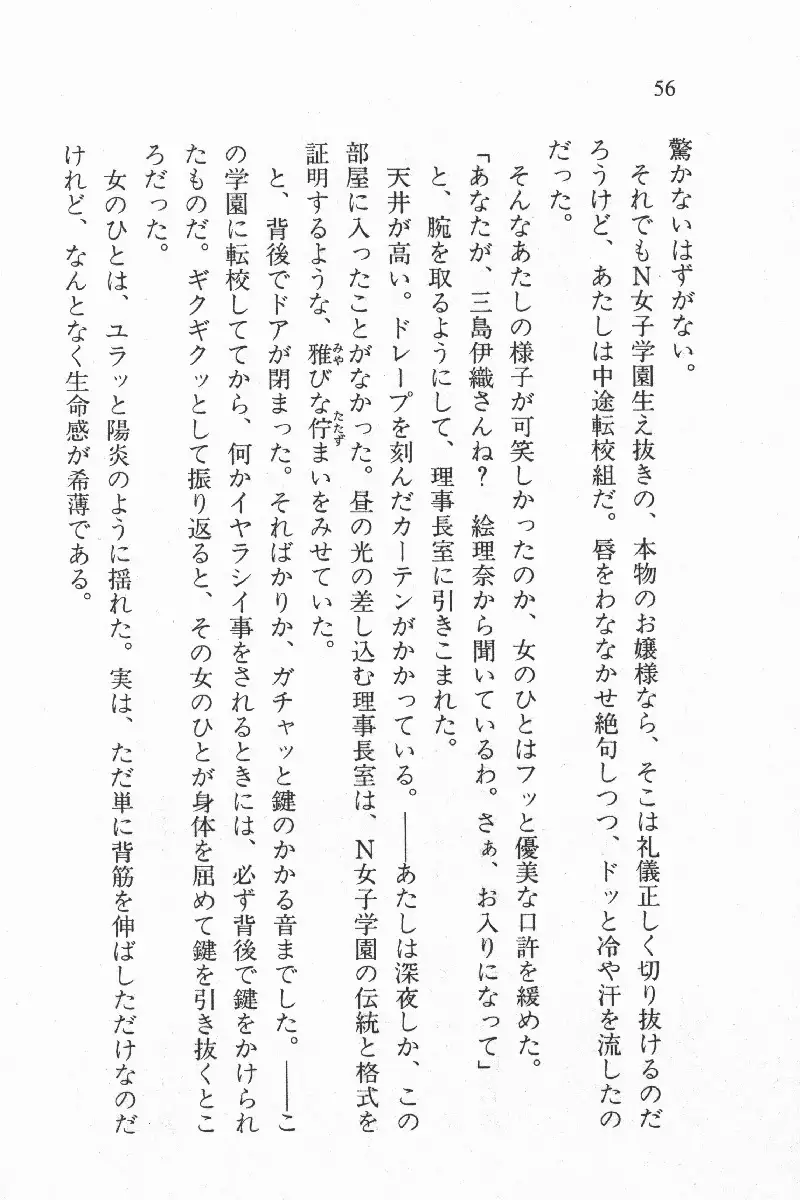 56
驚かないはずがない。
それでもN女子学園生え抜きの、本物のお嬢様なら、そこは礼儀正しく切り抜けるのだ
ろうけど、あたしは中途転校組だ。唇をわななかせ絶句しつつ、ドッと冷や汗を流したの
だった。
そんなあたしの様子が可笑しかったのか、女のひとはフッと優美な口許を緩めた。
「あなたが、三島伊織さんね？　絵理奈から聞いているわ。さぁ、お入りになって」
と、腕を取るようにして、理事長室に引きこまれた。
天井が高い。ドレープを刻んだカーテンがかかっている。――あたしは深夜しか、この
部屋に入ったことがなかった。昼の光の差し込む理事長室は、N女子学園の伝統と格式を
証明するような、雅びな佇まいをみせていた。
と、背後でドアが閉まった。そればかりか、ガチャッと鍵のかかる音までした。――こ
の学園に転校してから、何かイヤラシイ事をされるときには、必ず背後で鍵をかけられ
たものだ。ギクギクッとして振り返ると、その女のひとが身体を屈めて鍵を引き抜くとこ
ろだった。
女のひとは、ユラッと陽炎のように揺れた。実は、ただ単に背筋を伸ばしただけなのだ
けれど、なんとなく生命感が希薄である。